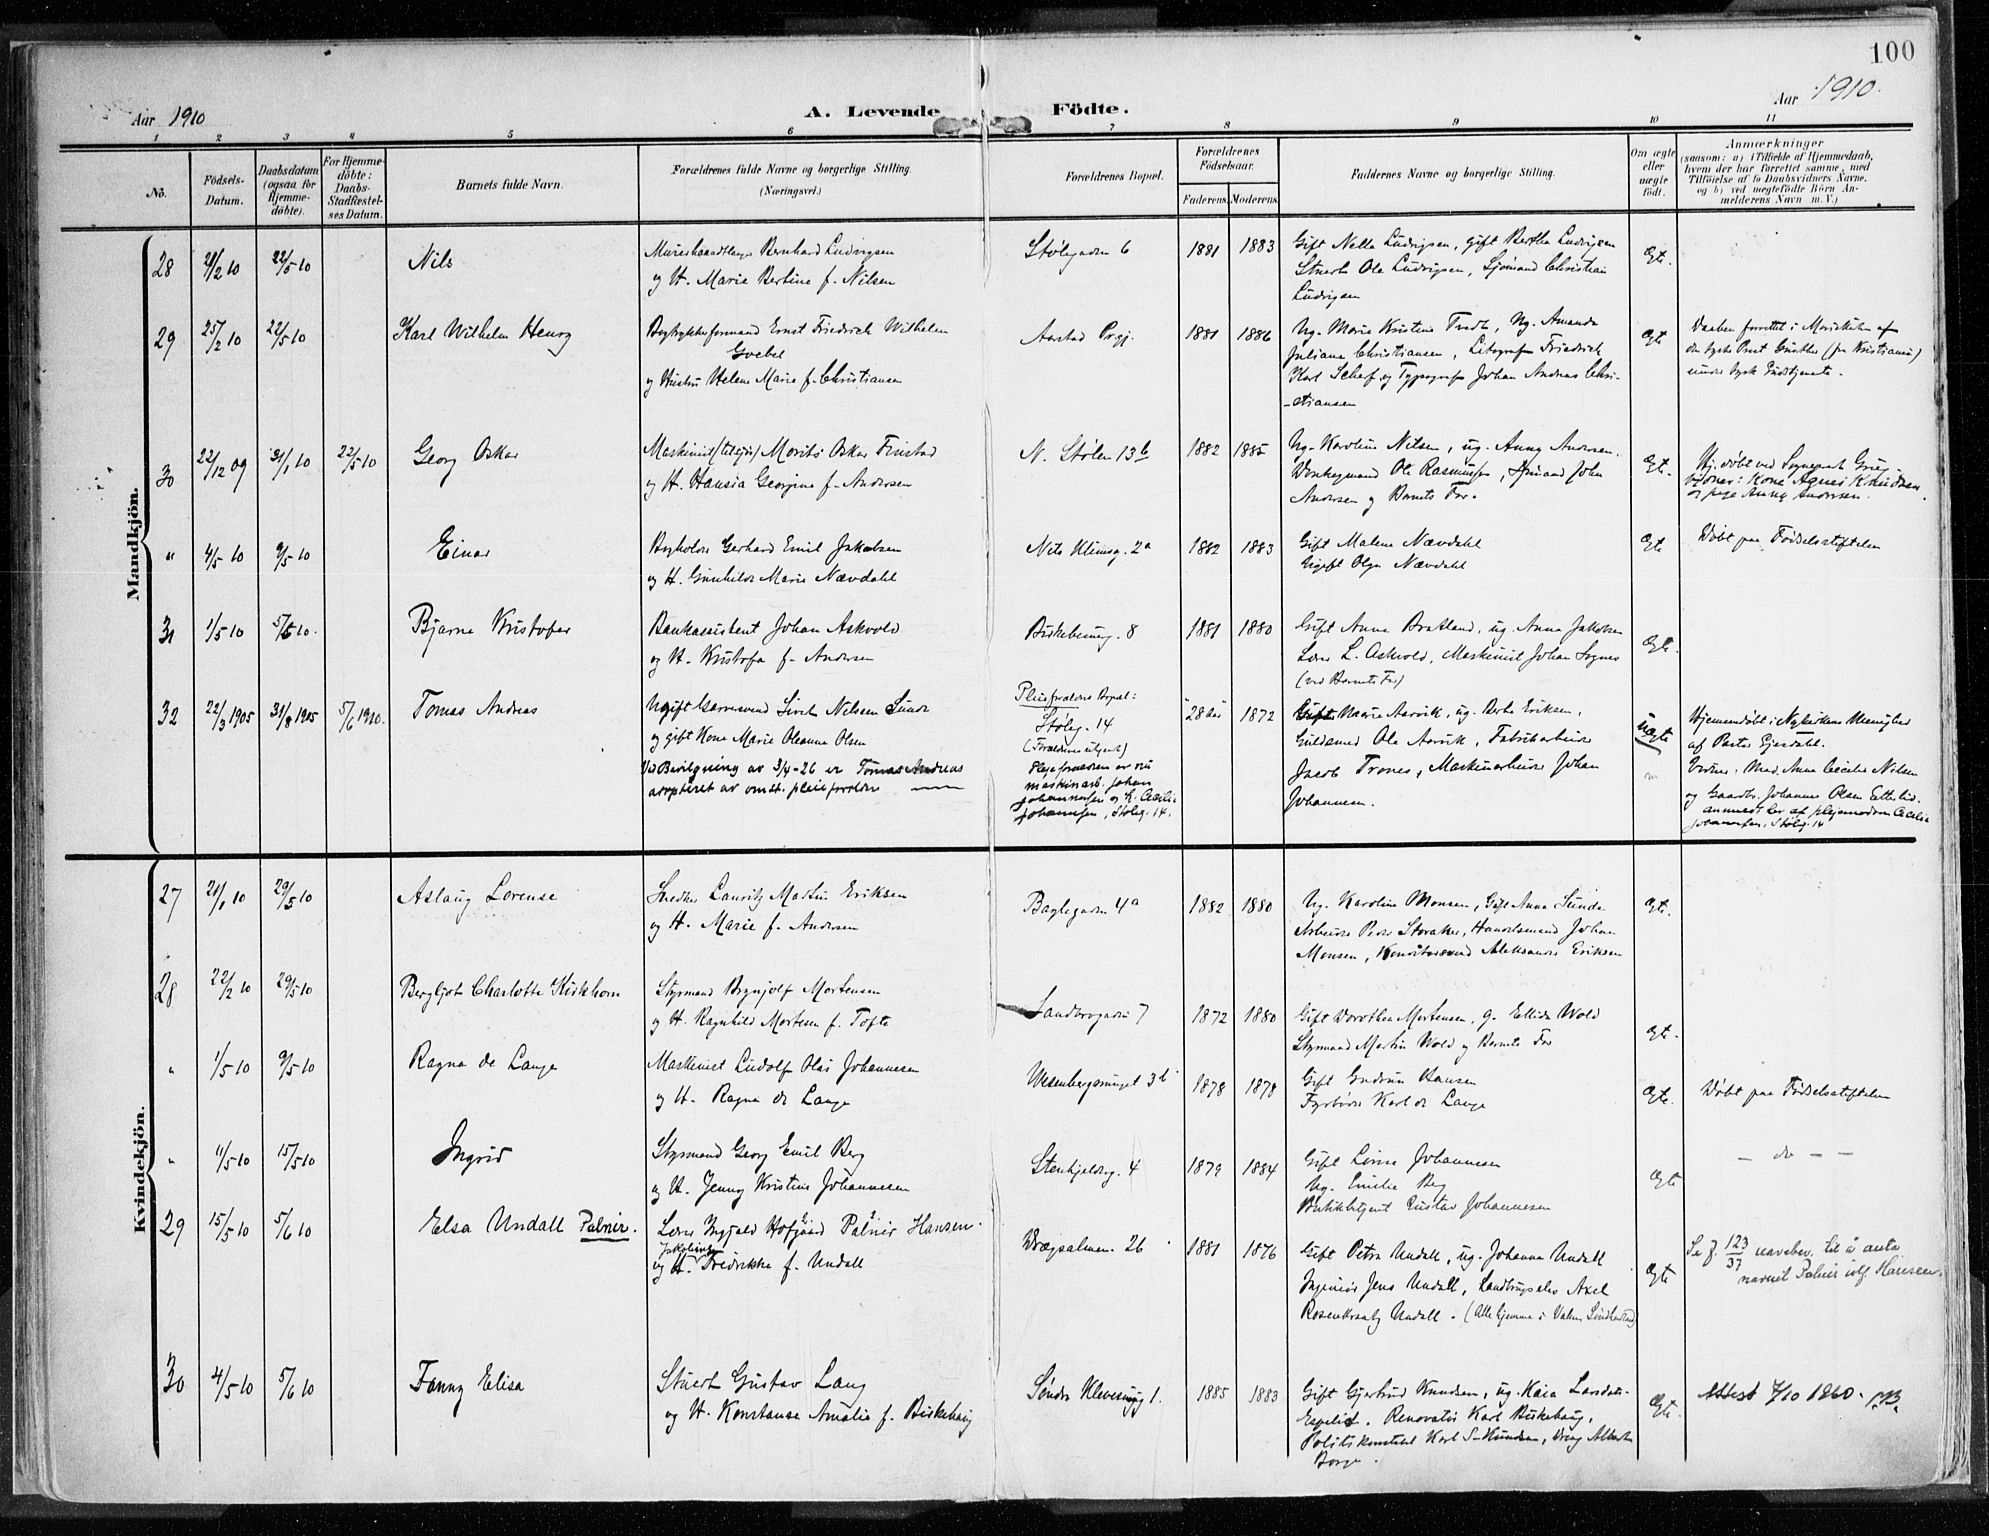 100
Aar 1910
A. Levende Födte.
Aar 1910.
1 2 3 4 5 6 7 8 9 10 11
No.
Födsels-
Datum.
Daabsdatum
(ogsaa for
Hjemme-
döbte).
For Hjemme-
döbte:
Daabs-
Stadfæstel-
ses Datum.
Barnets fulde Navn.
Forældrenes fulde Navne og borgerlige Stilling.
(Næringsvei.)
Forældrenes Bopæl.
Forældrenes
Födselsaar.
Faderens. Moderens.
Faddernes Navne og borgerlige Stilling.
Om ægte
eller
uægte
födt.
Anmærkninger
(saasom: a) i Tilfælde af Hjemmedaab,
hvem der har forrettet samme, med
Tilföielse af to Daabsvidners Navne,
og b) ved uegtefödte Börn An-
melderens Navn m. V.)
Mandkjön.
28 21/2 10 22/5 10 Nils
Bernhard Ludvigsen
og H. Marie Bertine f. Nilsen
Stølegaden 6 1881 1883
Gift Nella Ludvigsen, gift Bertha Ludvigsen
Stuert Ole Ludvigsen, Sjømand Christian
Ludvigsen
Egte.
29 25/2 10 22/5 10 Karl Wilhelm Henry
Bogtrykkeformand Ernst Friedrich Wilhelm
Goebel
og Hustru Helene Marie f. Christiansen
Aarstad Prgj. 1881 1886
Ug. Marie Kristine Tvedt, Ug. Amanda
Juliana Christiansen, Litograf Friedrich
Karl Schaf og Typograf Johan Andreas Chri-
-stiansen
Egte
Daaben forrettet i Mariakirken af
den tyske Prest Günther (fra Kristiania)
under tysk Gudstjeneste.
30 22/12 09 31/1 10 22/5 10 Georg Oskar
Maskinist Morits Oskar Finstad
og H. Hansia Georgine f. Andersen
N. Stølen 13b 1882 1885
Ug. Karoline Nilsen, ug. Anny Andersen,
Ole Rasmussen, Sjømand John
Andersen og Barnets Far.
Egte.
Hj.døbt ved Sogneprest Grieg
Vidner: Kone Agnes Knudsen
og pige Anny Andersen.
" 4/5 10 9/5 10 Einar
Bogholder Gerhard Emil Jakobsen
og H. Gunhilde Marie Nævdahl
Nils Klimsg. 2a 1882 1883
Gift Malene Nævdahl
Ugift Olga Nævdahl
Egte
Døbt paa Fødselsstiftelsen
31 1/5 10 5/6 10. Bjarne Kristofer
Bankassistent Johan Askvold
og H. Kristofa f. Andersen
Birkebeinerg. 8 1881 1880
Gift Anna Bratland, ug. Anna Jakobsen
Lærer L. Askvold, Maskinist Johan Sognes
(ved Barnets Far)
Egte.
32 22/3 1905 31/8 1905 5/6 1910. Tomas Andreas
Ugift Garversvend Sirert Nilsen Sunde
og gift Kone Marie Oleanna Olsen
Ved Bevilgning av 3/4-26 er Tomas Andreas
adopteret av omst. pleieforældre
Pleieforældrenes Bopæl:
Støleg. 14
(Forældrene ukjent)
Plejeforældrene er nu
maskinarb. Johan
Johannessen og H. Cecilie
Johannessen, Støleg. 14.
28 aar 1872
Gift Marie Aarvik, ug. Berta Eriksen,
Guldsmed Ole Aarvik, Fabrikarbeider
Jacob Trones, Maskinarbeider Johan
Johannesen.
uegte
Hjemmedøbt i Nykirkens Menighed
af Pastor Gjesdahl.
Vidner: Mad. Anna Cecilie Nilsen
og Gaardbr. Johannes Olsen Etterlid.
anmeldt ber af plejemoderen Cecilie
Johannesen, Støleg. 14
Kvindekjön.
27 21/1 10 29/5 10 Aslaug Lorense
Snedker Lauritz Martin Eriksen
og H. Marie f. Andersen
Baglegaden 4a 1882 1880
Ug. Karoline Monsen, Gift Anna Sunde
Arbeider Peder Storaker, Handelsmand Johan
Monsen, Konditorsvend Aleksander Eriksen
Egte.
28 22/2 10 29/5 10 Bergljot Charlotte Kirkhorn
Styrmand Brynjolf Mortensen
og H. Ragnhild Mortesen f. Tofte
Sandbrogaden 7 1872 1880
Gift Dorothea Mortensen, g. Ellida Wold
Styrmand Martin Wold og Barnets Far
Egte.
" 1/5 10 9/5 10 Ragna de Lange
Maskinist Ludolf Olai Johannesen
og H. Ragna de Lange
Wesenbergsmuget 3b 1878 1878
Gift Gudrun Hansen
Fyrbøder Karl de Lange
Egte.
Døbt paa Fødselsstiftelsen
" 11/5 10 15/5 10 Ingrid
Styrmand Georg Emil Berg
og H. Jenny Kristine Johannesen
Stenkjelderg. 4 1879 1884
Gift Lovise Johannesen
Ug. Emilie Berg
Butikbetjent Gustav Johannesen
Egte
— do — —
29 15/5 10 5/6 10 Elsa Undall Palnir.
Lærer Ingjald Hofgaard Palnir Hansen.
Jakobine
og H. Fredrikke f. Undall
Dragsalmen. 26 1881 1876
Gift Petra Undall, ug. Johanna Undall
Ingeniør Jens Undall, Landbrugselev Axel
Rosenkrantz Undall. (Alle hjemme i Valen, Søndhordland)
Egte
Se J. 123/37 navnebev. til å anta
navnet Palnir istf. Hansen.
30 4/5 10 5/6 10 Fanny Elisa
Stuert Gustav Lang
og H. Konstanse Amalia f. Birkehaug
Søndre Kleversmug 1. 1885 1883
Gift Gjertrud Knudsen, ug. Kaia Larsdatt.
Espelid. Renovatør Karl Birkehaug,
Politikonstabel Karl S. Knudsen, Dreng Albert
Borge.
Egte.
Attest 7/10 1960.